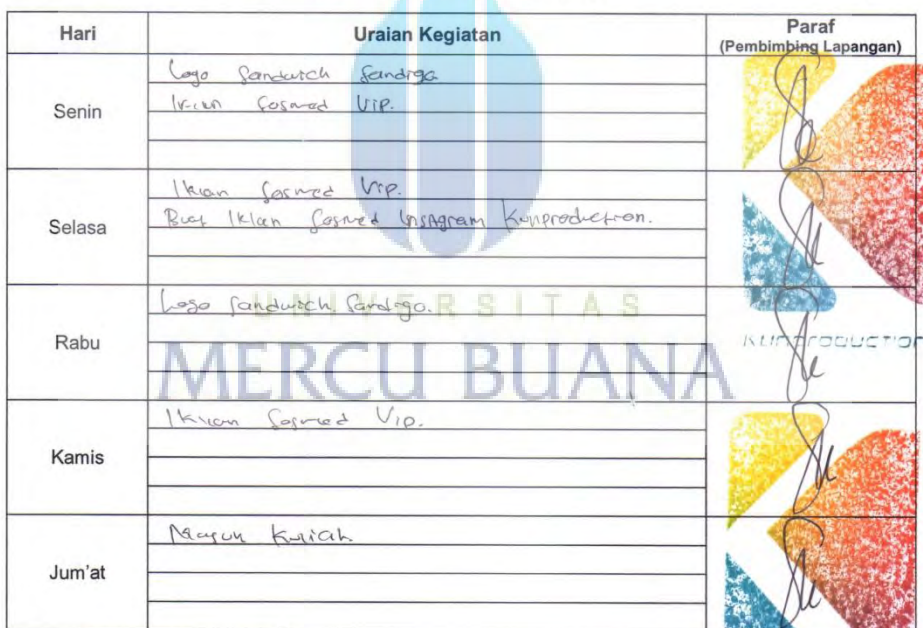 Hari Uraian Kegiatan Paraf
(Pembimbing Lapangan)
Senin
Logo Sandwich Sandiga
Iklan Sosmed Vip.
Selasa
Iklan Sosmed Vip.
Buat Iklan Sosmed Instagram Kunproduction.
Rabu
Logo Sandwich Sandiga.
UNIVERSITAS
MERCU BUANA
Kunproduction
Kamis
Iklan Sosmed Vip.
Jum'at
Masuk Kuliah